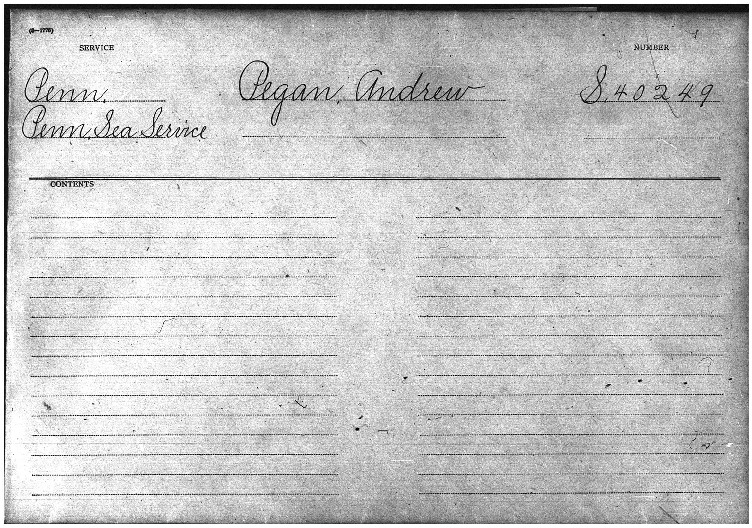 (3—1776)
SERVICE NUMBER
Penn. Pegan, Andrew S. 40249
Penn. Sea Service
CONTENTS